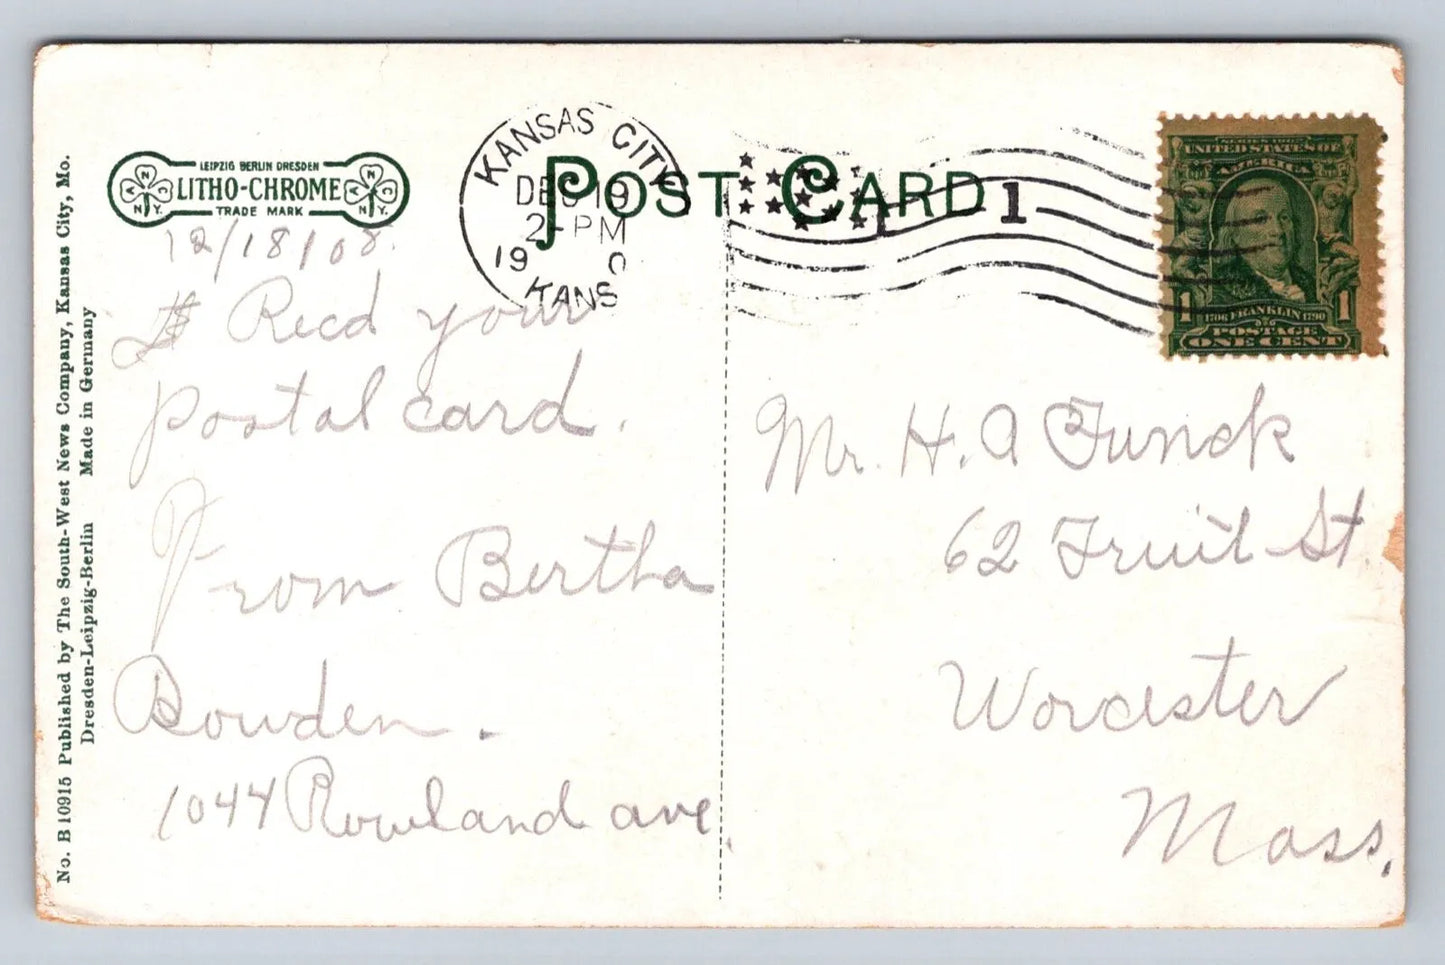 No. B 10915 Published by The South-West News Company, Kansas City, Mo.
Dresden-Leipzig-Berlin Made in Germany
LEIPZIG BERLIN DRESDEN
LITHO-CHROME
TRADE MARK
A N C N.Y.
A N C N.Y.
POST CARD
KANSAS CITY
DEC 19
2-PM
19 0
KANS
1
SERIES 1902
UNITED STATES OF
AMERICA
1 1
1706 FRANKLIN 1790
POSTAGE
ONE CENT
12/18/08.
Recd your
postal card.
From Bertha
Bowden.
1044 Rowland ave.
Mr. H. A Funck
62 Fruit St.
Worcester
Mass.